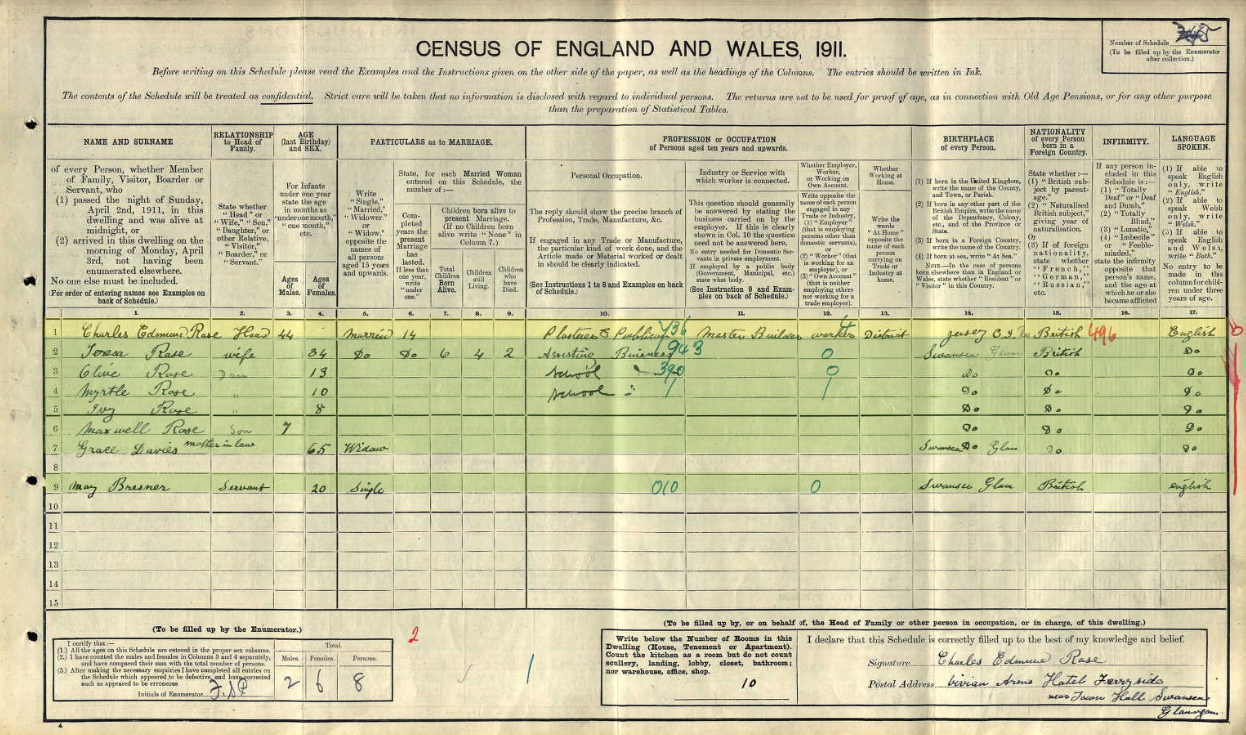 Number of Schedule 345
(To be filled up by the Enumerator
after collection.)
CENSUS OF ENGLAND AND WALES, 1911.
Before writing on this Schedule please read the Examples and the Instructions given on the other side of the paper, as well as the headings of the Columns. The entries should be written in Ink.
The contents of the Schedule will be treated as confidential. Strict care will be taken that no information is disclosed with regard to individual persons. The returns are not to be used for proof of age, as in connection with Old Age Pensions, or for any other purpose
than the preparation of Statistical Tables.
NAME AND SURNAME
of every Person, whether Member
of Family, Visitor, Boarder or
Servant, who
(1) passed the night of Sunday,
April 2nd, 1911, in this
dwelling and was alive at
midnight, or
(2) arrived in this dwelling on the
morning of Monday, April
3rd, not having been
enumerated elsewhere.
No one else must be included.
(For order of entering names see Examples on
back of Schedule.)
RELATIONSHIP
to Head of
Family.
State whether
"Head," or
"Wife," "Son,"
"Daughter," or
other Relative,
"Visitor,"
"Boarder," or
"Servant."
AGE
(last Birthday)
and SEX.
For Infants
under one year
state the age
in months as
"under one month,"
"one month,"
etc.
Ages
of
Males.
Ages
of
Females.
PARTICULARS as to MARRIAGE.
Write
"Single,"
"Married,"
"Widower,"
or
"Widow,"
opposite the
names of
all persons
aged 15 years
and upwards.
State, for each Married Woman
entered on this Schedule, the
number of:—
Completed
years the
present
Marriage
has
lasted.
If less than
one year
write
"under
one."
Children born alive to
present Marriage.
(If no Children born
alive write "None" in
Column 7.)
Total
Children
Born
Alive.
Children
still
Living.
Children
who
have
Died.
PROFESSION or OCCUPATION
of Persons aged ten years and upwards.
Personal Occupation.
The reply should show the precise branch of
Profession, Trade, Manufacture, &c.
If engaged in any Trade or Manufacture,
the particular kind of work done, and the
Article made or Material worked or dealt
in should be clearly indicated.
(See Instructions 1 to 8 and Examples on back
of Schedule.)
Industry or Service with
which worker is connected.
This question should generally
be answered by stating the
business carried on by the
employer. If this is clearly
shown in Col. 10 the question
need not be answered here.
No entry needed for Domestic Servants
in private employment.
If employed by a public body
(Government, Municipal, etc.)
state what body.
(See Instruction 9 and Examples
on back of Schedule.)
Whether Employer,
Worker,
or Working on
Own Account.
Write opposite the
name of each person
engaged in any
Trade or Industry,
(1) "Employer"
(that is employing
persons other than
domestic servants),
or
(2) "Worker" (that
is working for an
employer), or
(3) "Own Account"
(that is neither
employing others
nor working for a
trade employer).
Whether
Working at
Home.
Write the
words
"At Home"
opposite the
name of each
person
carrying on
Trade or
Industry at
home.
BIRTHPLACE
of every Person.
(1) If born in the United Kingdom,
write the name of the County,
and Town, or Parish.
(2) If born in any other part of the
British Empire, write the name
of the Dependency, Colony,
etc., and of the Province or
State.
(3) If born in a Foreign Country,
write the name of the Country.
(4) If born at sea, write "At Sea."
NOTE.—In the case of persons
born elsewhere than in England or
Wales, state whether "Resident" or
"Visitor" in this Country.
NATIONALITY
of every Person
born in a
Foreign Country.
State whether:—
(1) "British subject
by parentage,"
(2) "Naturalised
British subject,"
giving year of
naturalisation.
Or
(3) If of foreign
nationality,
state whether
"French,"
"German,"
"Russian,"
etc.
INFIRMITY.
If any person included
in this
Schedule is:—
(1) "Totally
Deaf" or "Deaf
and Dumb,"
(2) "Totally
Blind,"
(3) "Lunatic,"
(4) "Imbecile"
or "Feeble-minded,"
state the infirmity
opposite that
person's name,
and the age at
which he or she
became afflicted
LANGUAGE
SPOKEN.
(1) If able to
speak English
only, write
"English."
(2) If able to
speak Welsh
only, write
"Welsh."
(3) If able to
speak English
and Welsh,
write "Both."
No entry to be
made in this
column for children
under three
years of age.
1. 2. 3. 4. 5. 6. 7. 8. 9. 10. 11. 12. 13. 14. 15. 16. 17.
1 Charles Edmund Rose Head 44 Married 14 Publican 736 Master Builder worker District Jersey C.I. British 496 English
2 Teresa Rose wife 34 Do Do 6 4 2 Business 943 0 Swansea Glam British Do
3 Clive Rose Dau 13 School 390 0 Do Do Do
4 Myrtle Rose " 10 School Do Do Do
5 Ivy Rose " 8 Do Do Do
6 Maxwell Rose Son 7 Do Do Do
7 Grace Davies mother in law 65 Widow Swansea Do Glam Do Do
8
9 May Bresner Servant 20 Single 010 0 Swansea Glam British English
10
11
12
13
14
15
(To be filled up by the Enumerator.)
I certify that:—
(1.) All the ages on this Schedule are entered in the proper sex columns.
(2.) I have counted the males and females in Columns 3 and 4 separately,
and have compared their sum with the total number of persons.
(3.) After making the necessary enquiries I have completed all entries on
the Schedule which appeared to be defective, and have corrected
such as appeared to be erroneous
Initials of Enumerator
Total.
Males. Females. Persons.
2 6 8
2
(To be filled up by, or on behalf of, the Head of Family or other person in occupation, or in charge, of this dwelling.)
Write below the Number of Rooms in this
Dwelling (House, Tenement or Apartment).
Count the kitchen as a room but do not count
scullery, landing, lobby, closet, bathroom;
nor warehouse, office, shop.
10
I declare that this Schedule is correctly filled up to the best of my knowledge and belief.
Signature Charles Edmund Rose
Postal Address Vivian Arms Hotel Ferryside
near Town Hall Swansea
Glamorgan
4